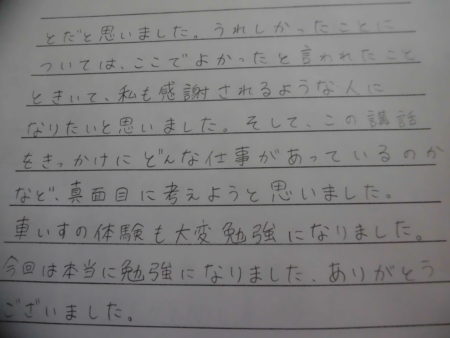 とだと思いました。うれしかったことに
ついては、ここでよかったと言われたこと
ときいて、私も感謝されるような人に
なりたいと思いました。そして、この講話
をきっかけにどんな仕事があっているのか
など、真面目に考えようと思いました。
車いすの体験も大変勉強になりました。
今回は本当に勉強になりました、ありがとう
ございました。